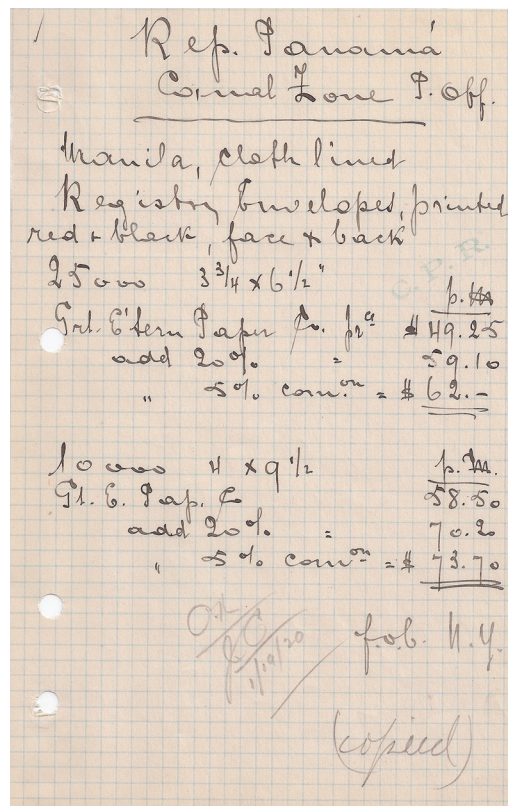 1
Rep. Panamá
Canal Zone P. Off.
Manila, cloth lined
Registry Envelopes, printed
red + black, face + back
C.P.R.
25000 3 3/4 x 6 1/2"
p. M
Grt. E'tern Paper Co. pr a $ 49.25
add 20% = 59.10
" 5% com.on = $ 62.-
10000 4 x 9 1/2 p. M.
Gt. E. Pap. Co 58.50
add 20% = 70.20
" 5% com on = $ 73.70
O.K.
JC
1/19/20
f.o.b. N.Y.
(copied)